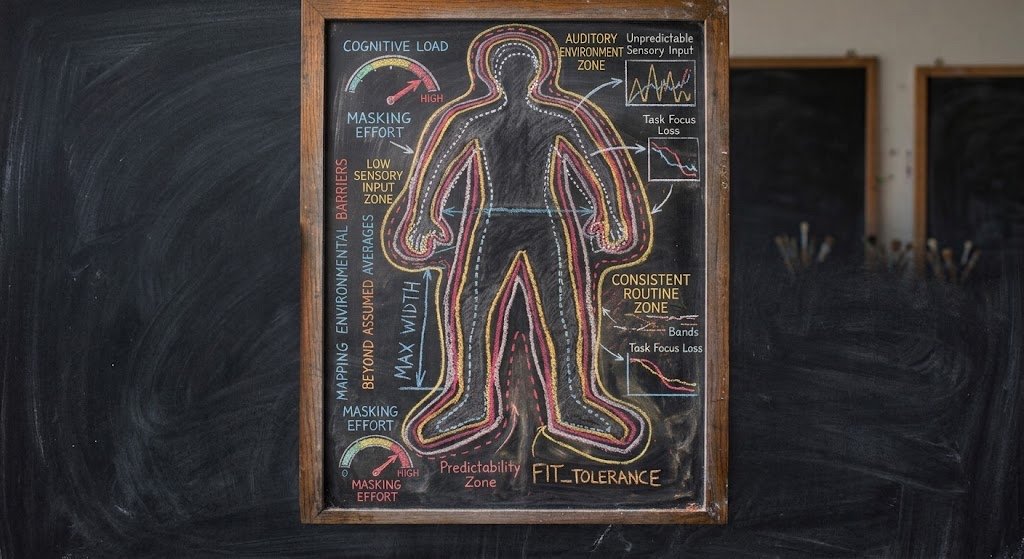 COGNITIVE LOAD
HIGH
MASKING
EFFORT
LOW
SENSORY
INPUT
ZONE
MAPPING ENVIRONMENTAL BARRIERS
BEYOND ASSUMED AVERAGES
MAX WIDTH
MASKING
EFFORT
0
HIGH
MASKING
EFFORT
AUDITORY
ENVIRONMENT
ZONE
Unpredictable
Sensory Input
Task Focus
Loss
CONSISTENT
ROUTINE
ZONE
Bands
Task Focus Loss
Predictability
Zone
FIT_TOLERANCE